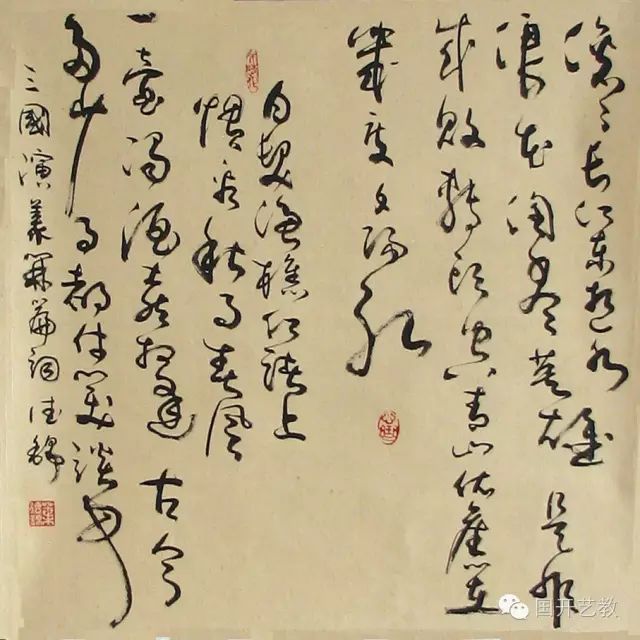 滚〻长江东逝水
浪花淘尽英雄 是非
成败转头空 青山依旧在
几度夕阳红
白发渔樵江渚上
惯看秋月春风
一壶浊酒喜相逢 古今
多少事都付笑谈中
三國演義開篇詞
国开艺教